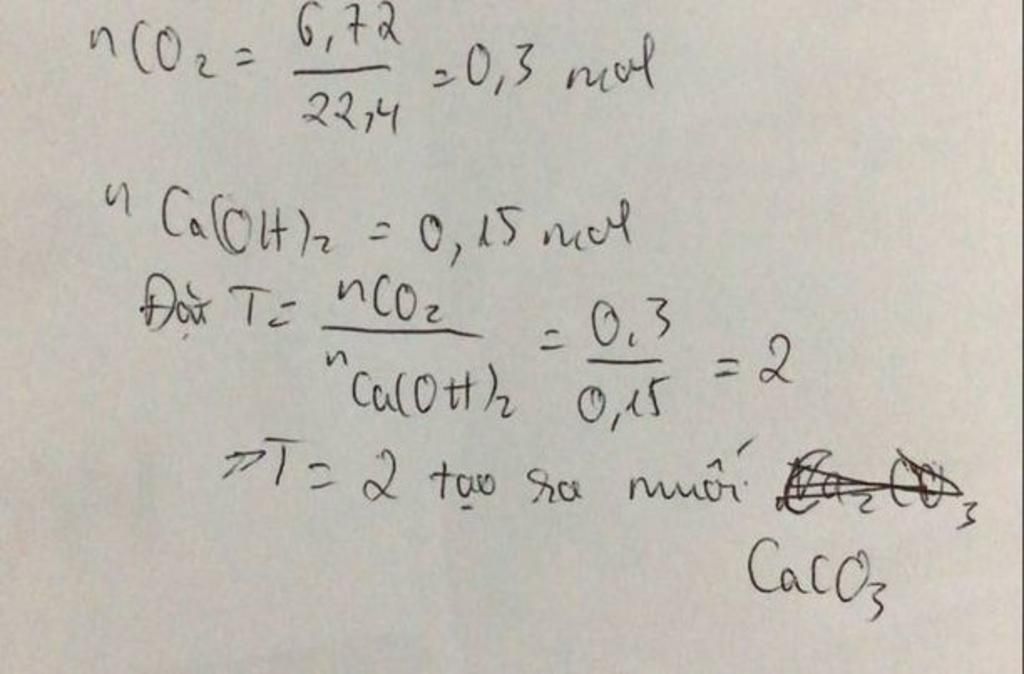 nCO₂ = 6,72 / 22,4 = 0,3 mol
n Ca(OH)₂ = 0,15 mol
Đặt T = nCO₂ / nCa(OH)₂ = 0,3 / 0,15 = 2
=> T = 2 tạo ra muối Ca₂CO₃
CaCO₃